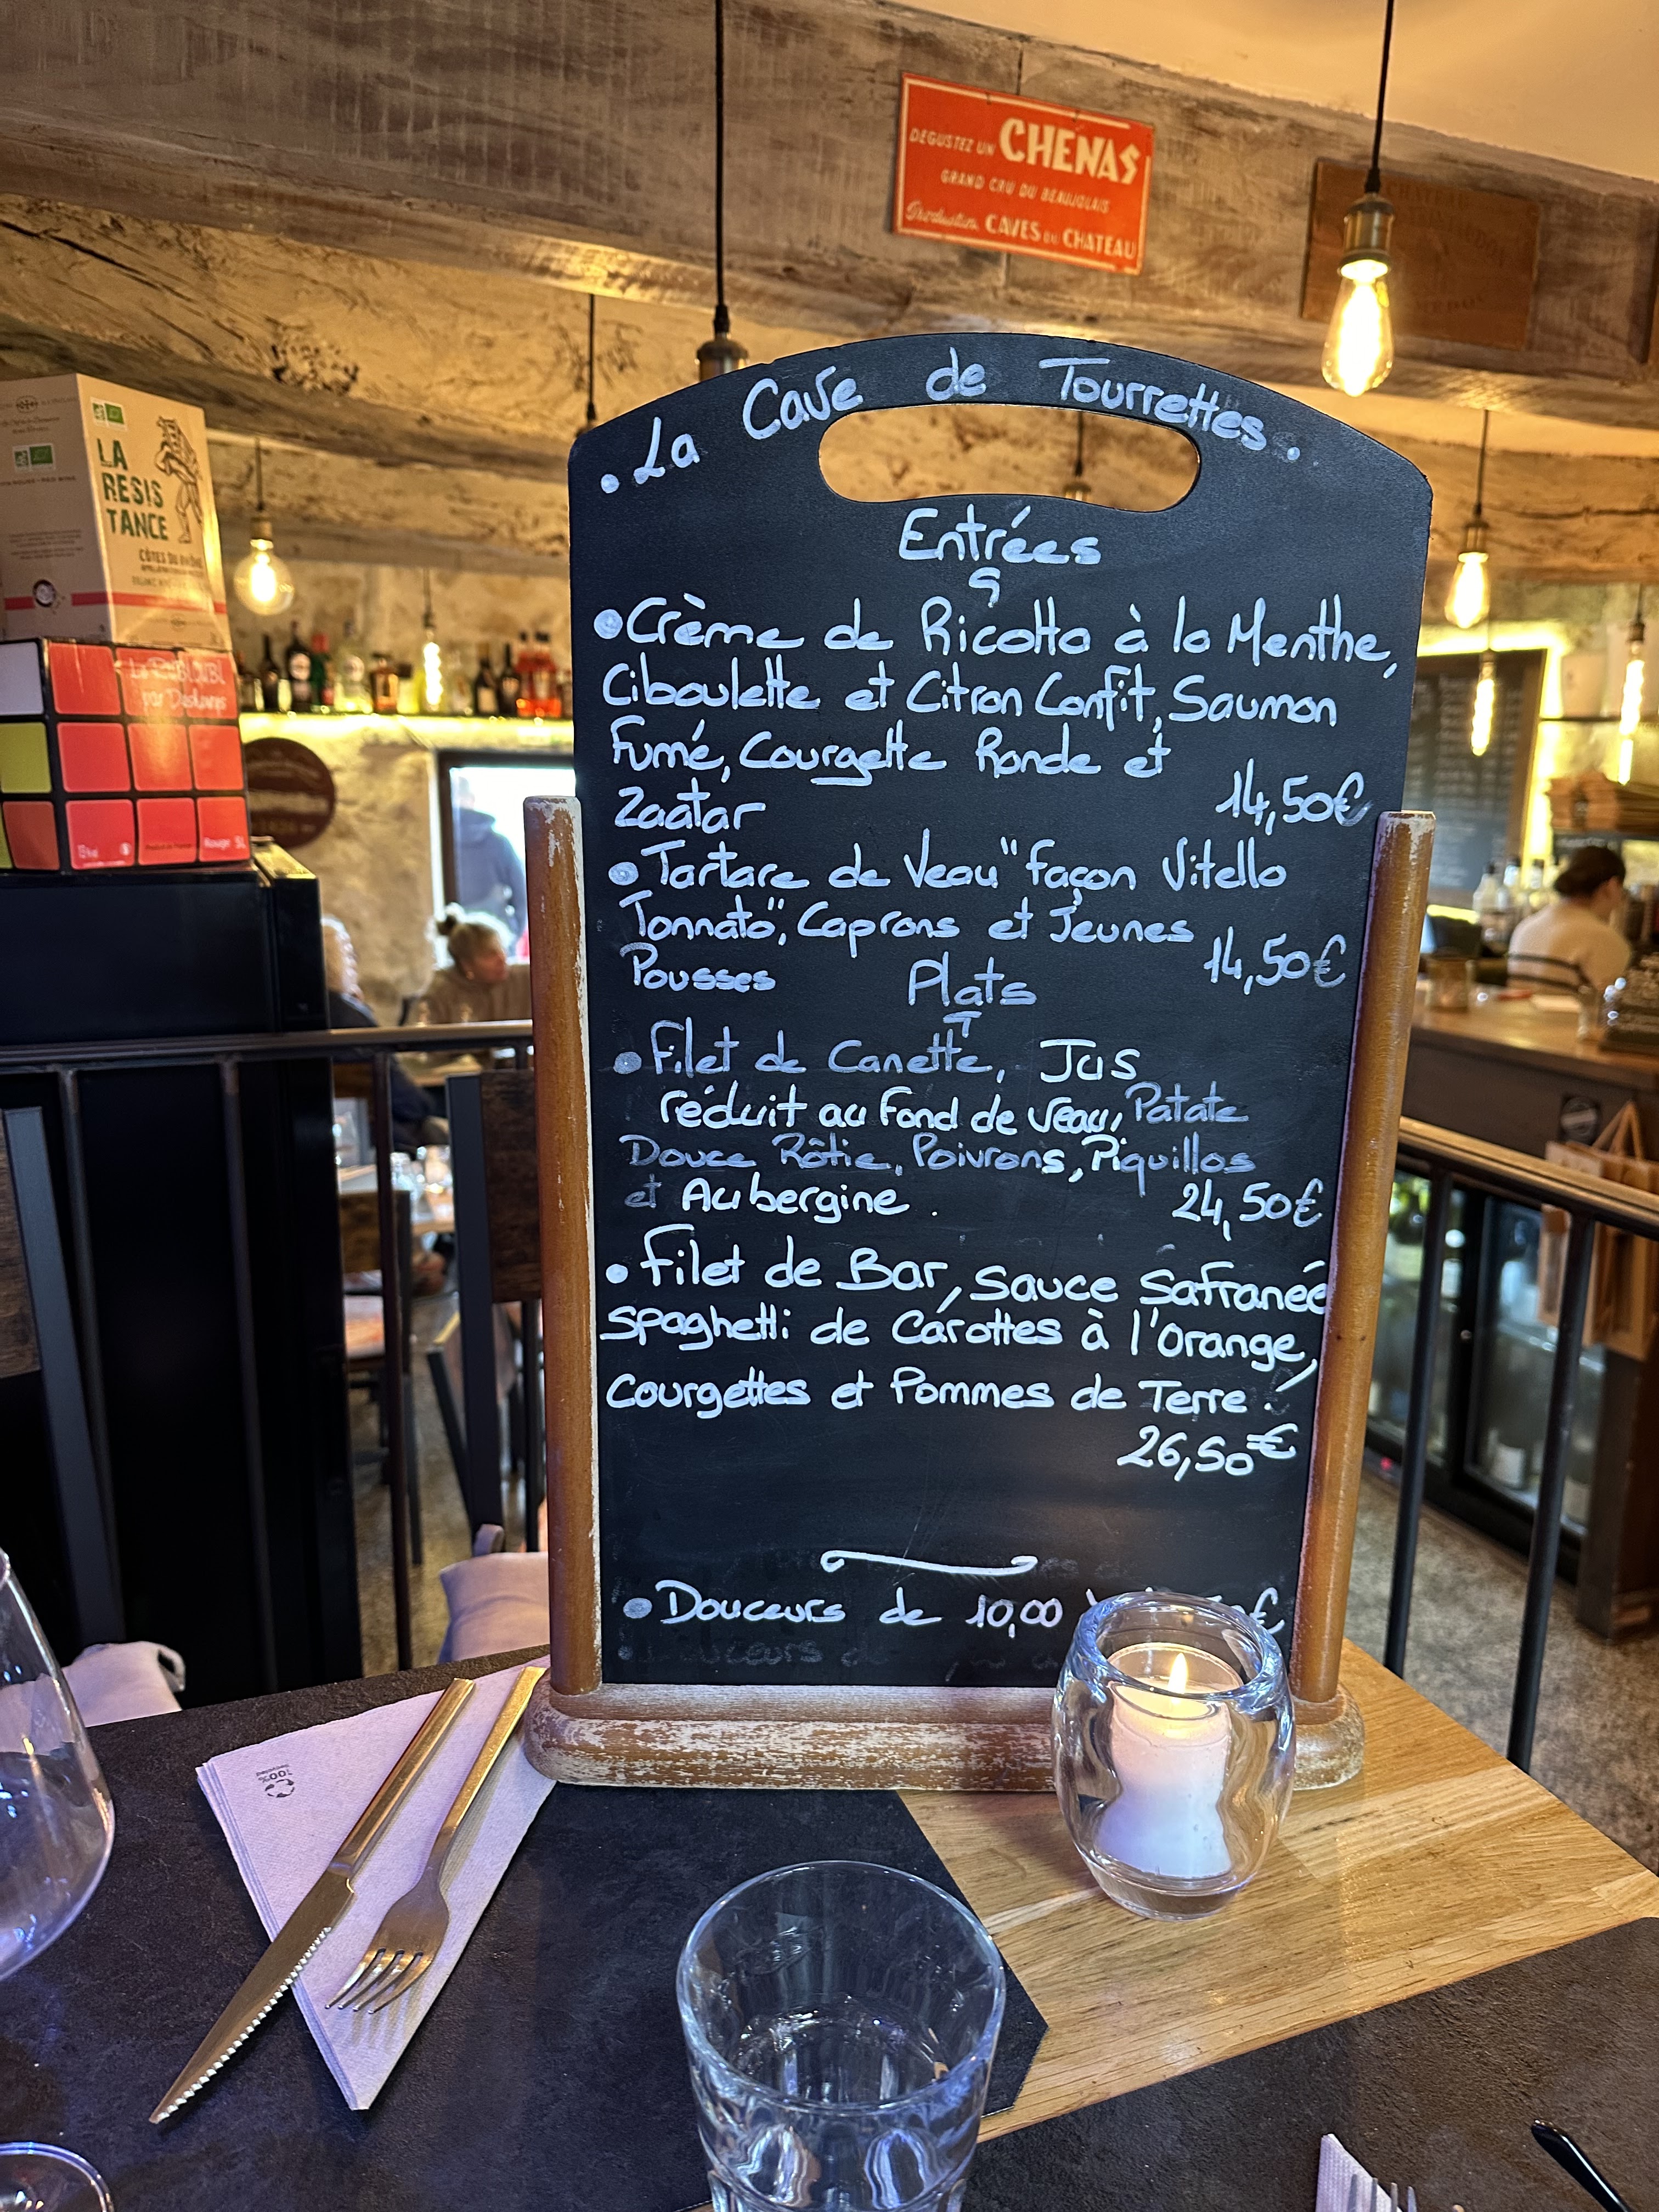 DEGUSTEZ UN CHENAS
GRAND CRU DU BEAUJOLAIS
CAVES DU CHATEAU
LA
RESIS
TANCE
CÔTES DU RHÔNE
Rouge 5L
. La Cave de Tourrettes .
Entrées
• Crème de Ricotta à la Menthe,
Ciboulette et Citron Confit, Saumon
Fumé, Courgette Ronde et
Zaatar 14,50€
• Tartare de Veau "façon Vitello
Tonnato", Caprons et Jeunes
Pousses 14,50€
Plats
• Filet de Canette, Jus
réduit au Fond de veau, Patate
Douce Rôtie, Poivrons, Piquillos
et Aubergine . 24,50€
• Filet de Bar, Sauce Safranée
Spaghetti de Carottes à l'Orange,
Courgettes et Pommes de Terre .
26,50€
• Douceurs de 10,00
100%